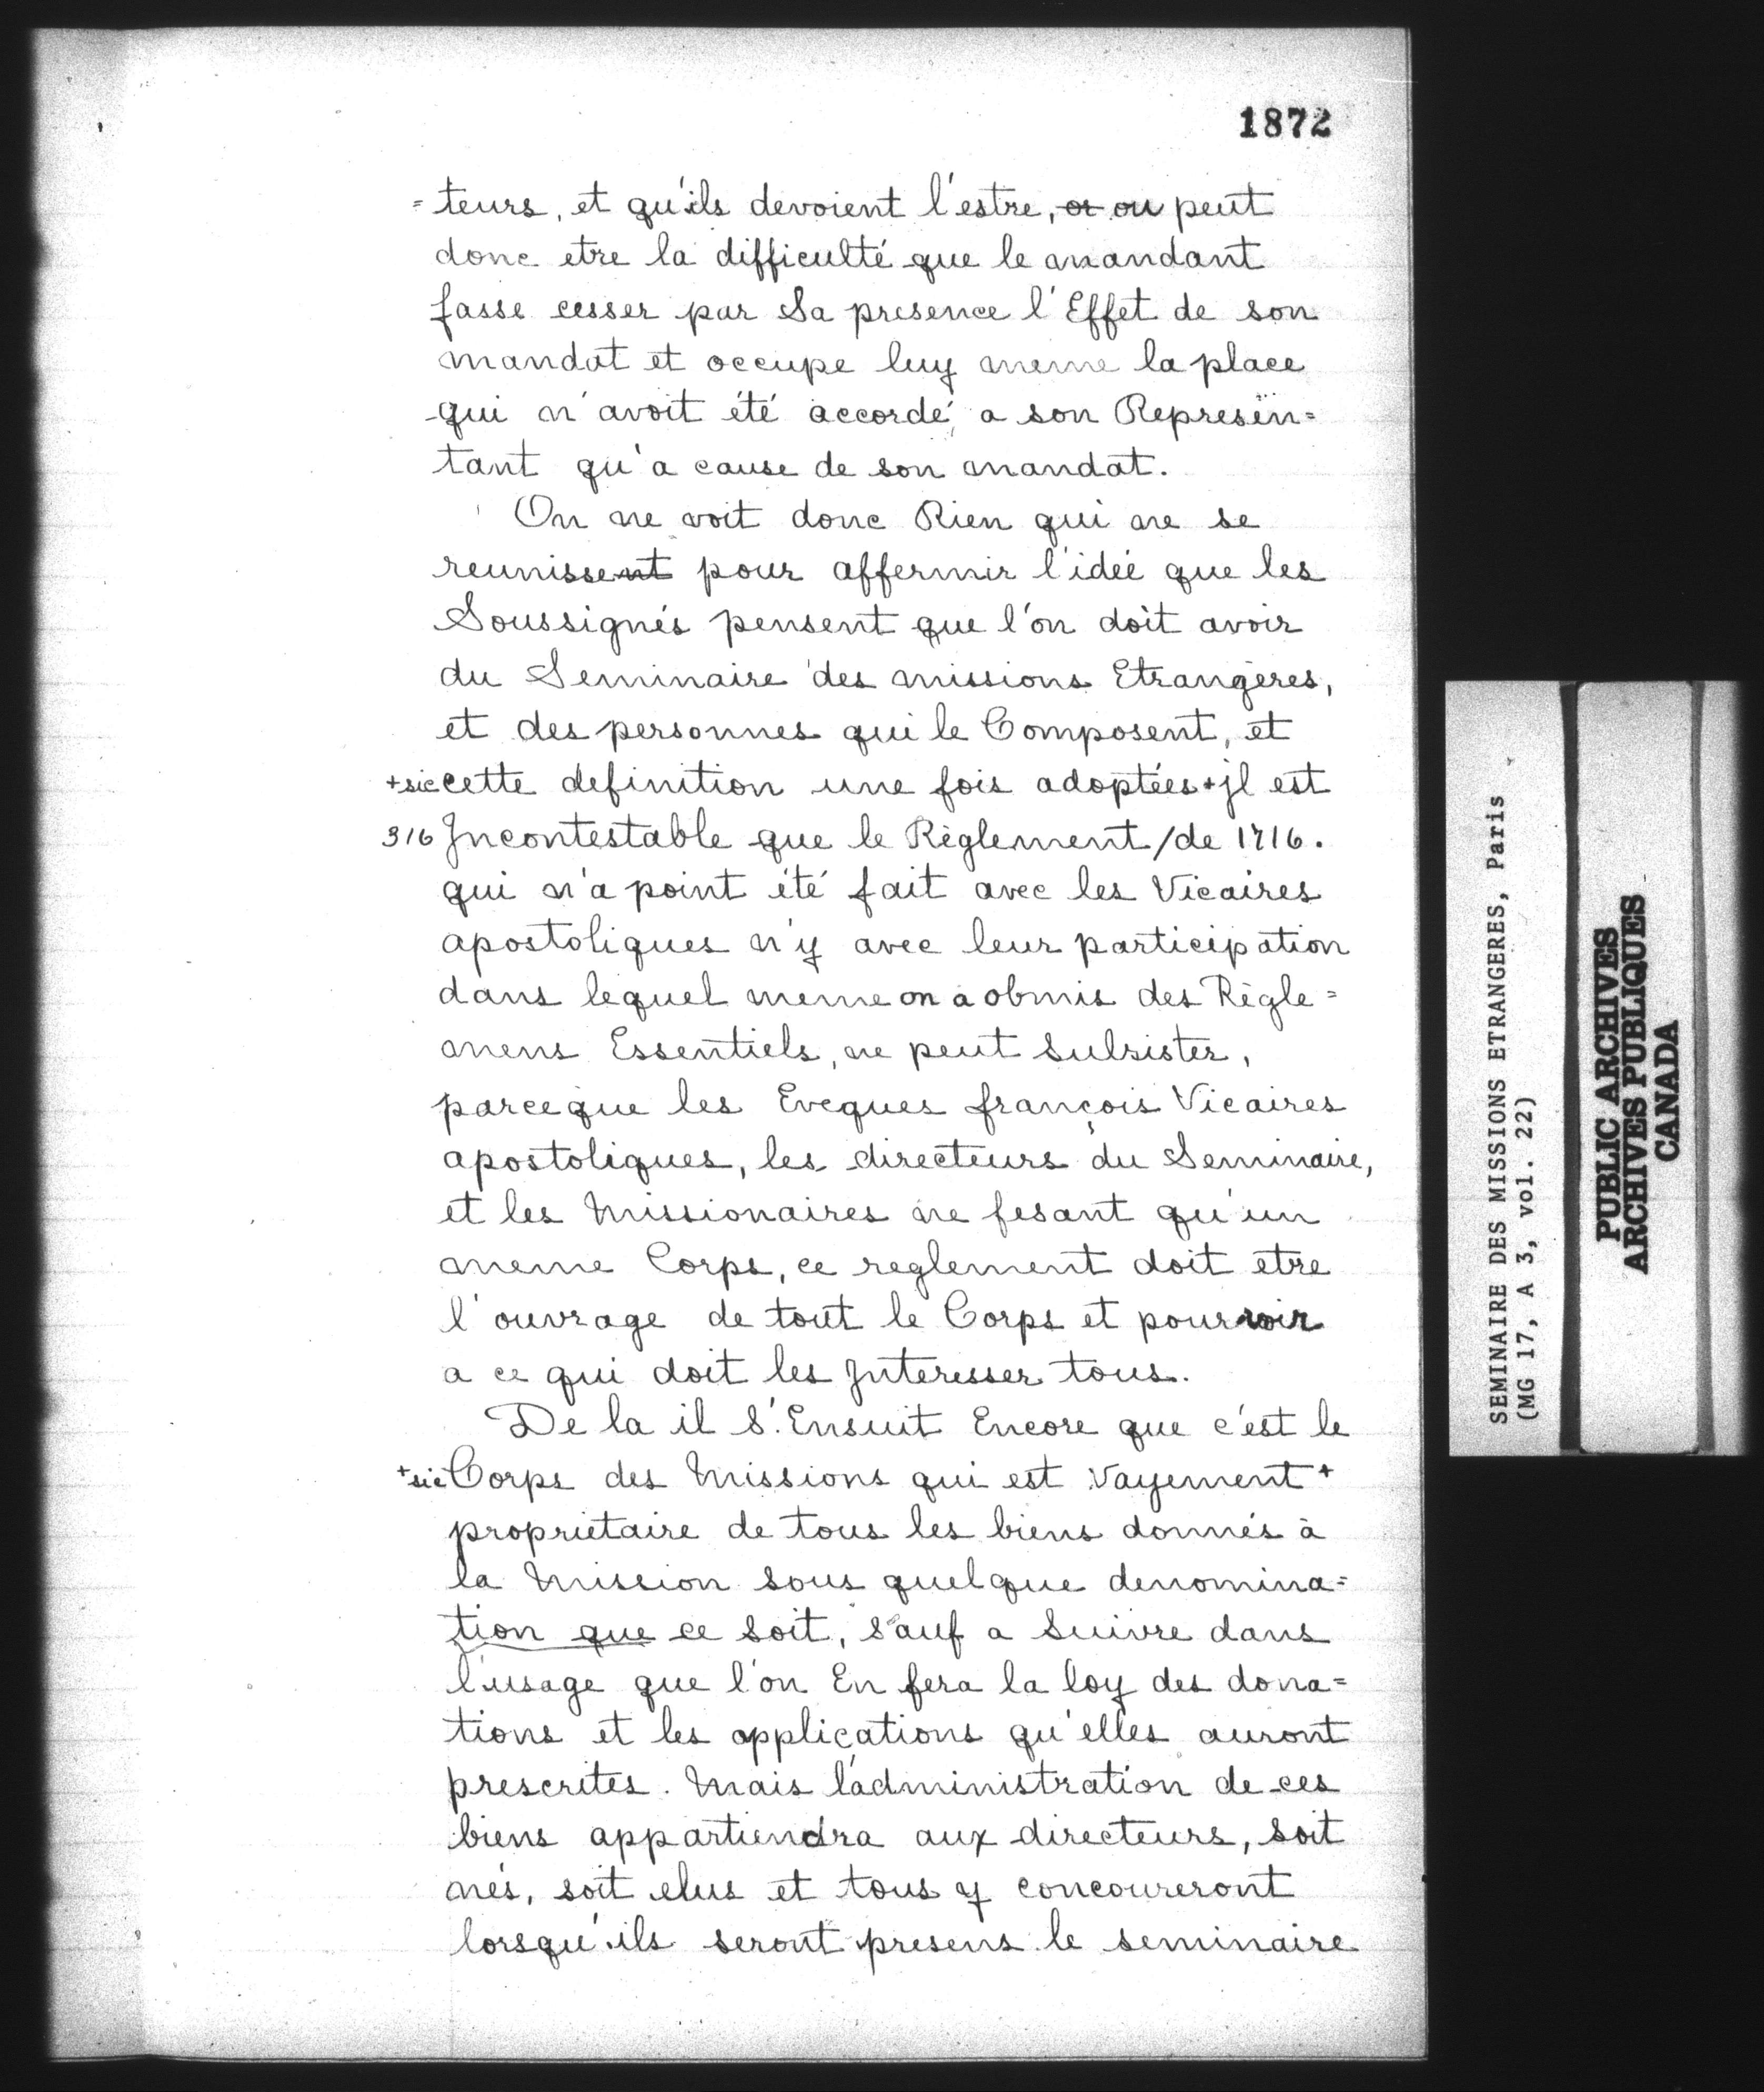 1872
=teurs, et qu'ils devoient l'estre, or ou peut
donc etre la difficulté que le mandant
fasse cesser par Sa presence l'Effet de son
mandat et occupe luy meme la place
qui n'avoit été accordé a son Represen=
tant qu'a cause de son mandat.
On ne voit donc Rien qui ne se
reunissent pour affermir l'idée que les
Soussignés pensent que l'on doit avoir
du Seminaire des missions Etrangères,
et des personnes qui le Composent, et
+sic cette definition une fois adoptées+ jl est
316 Jncontestable que le Règlement/de 1716.
qui n'a point été fait avec les Vicaires
apostoliques n'y avec leur participation
dans lequel meme on a obmis des Règle=
mens Essentiels, ne peut subsister,
parceque les Eveques françois Vicaires
apostoliques, les directeurs du Seminaire,
et les Missionaires ne fesant qu'un
meme Corps, ce reglement doit etre
l'ouvrage de tout le Corps et pourvoir
a ce qui doit les Jnteresser tous.
De la il S'Ensuit Encore que c'est le
+sic Corps des Missions qui est Vayement +
propriétaire de tous les biens donnés à
la Mission sous quelque denomina=
tion que ce soit, sauf a Suivre dans
l'usage que l'on En fera la loy des dona=
tions et les applications qu'elles auront
prescrites. Mais l'administration de ces
biens appartiendra aux directeurs, soit
nés, soit elus et tous y concoureront
lorsqu'ils seront presens le seminaire
SEMINAIRE DES MISSIONS ETRANGERES, Paris
(MG 17, A 3, vol. 22)
PUBLIC ARCHIVES
ARCHIVES PUBLIQUES
CANADA